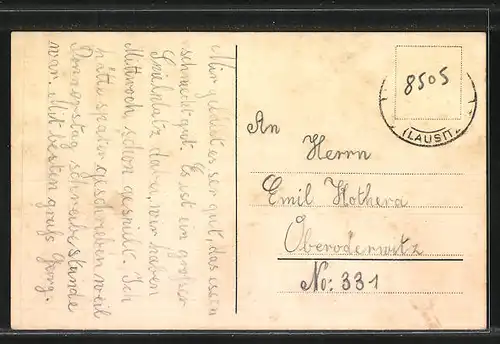 Mir gefällt es ser gut, das essen
schmeckt gut. Es ist ein großer
Spielplatz da wo wir haben
Mittwoch schon gespielt. Ich
hätte später geschrieben weil
Donnerstag schreibestunde
war. Mit besten gruß Georg.
8505
(LAUSITZ
An
Herrn
Emil Kothera
Oberoderwitz
No: 331